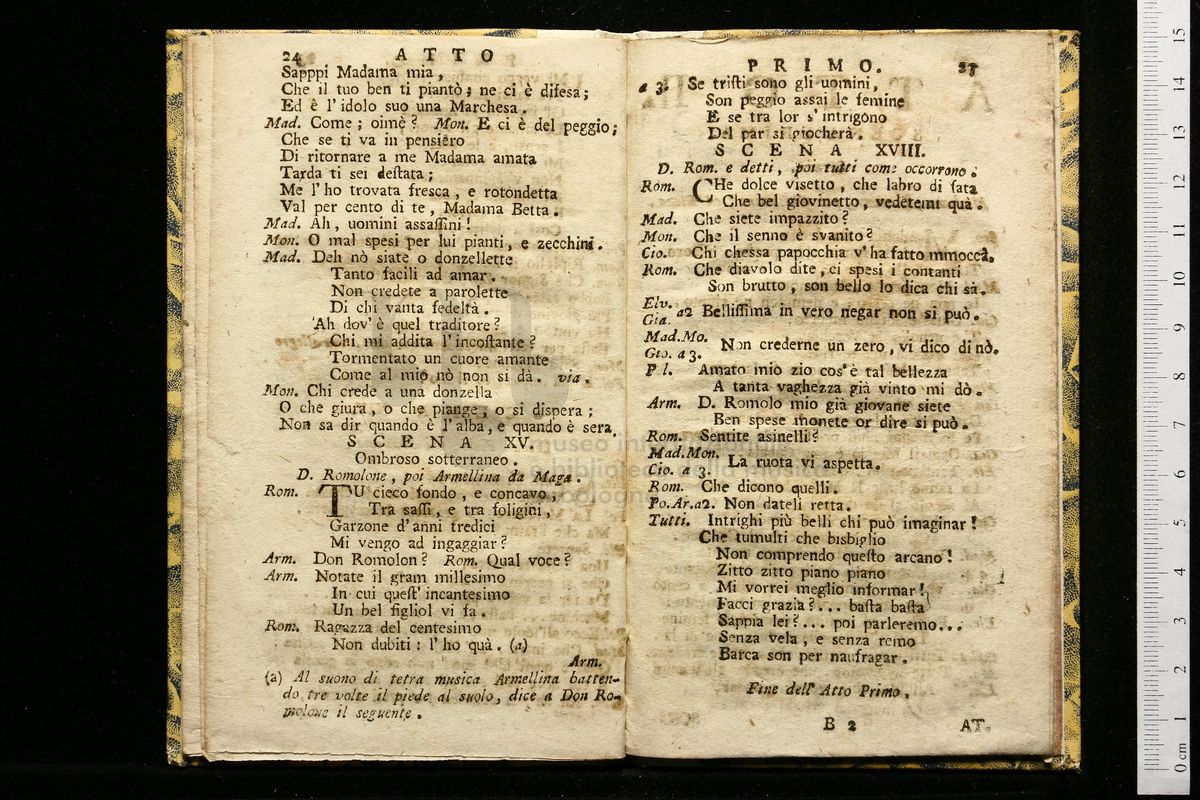 24 ATTO
Sapppi Madama mia,
Che il tuo ben ti piantò; ne ci è difesa;
Ed è l'idolo suo una Marchesa.
Mad. Come; oimè? Mon. E ci è del peggio;
Che se ti va in pensiero
Di ritornare a me Madama amata
Tarda ti sei destata;
Me l'ho trovata fresca, e rotondetta
Val per cento di te, Madama Betta.
Mad. Ah, uomini assassini!
Mon. O mal spesi per lui pianti, e zecchini.
Mad. Deh nò siate o donzellette
Tanto facili ad amar.
Non credete a parolette
Di chi vanta fedeltà.
Ah dov'è quel traditore?
Chi mi addita l'incostante?
Tormentato un cuore amante
Come al mio nò non si dà. via.
Mon. Chi crede a una donzella
O che giura, o che piange, o si dispera;
Non sa dir quando è l'alba, e quando è sera.
SCENA XV.
Ombroso sotterraneo.
D. Romolone, poi Armellina da Maga.
Rom. TU cieco fondo, e concavo,
Tra sassi, e tra foligini,
Garzone d'anni tredici
Mi vengo ad ingaggiar?
Arm. Don Romolon? Rom. Qual voce?
Arm. Notate il gram millesimo
In cui quest' incantesimo
Un bel figliol vi fa.
Rom. Ragazza del centesimo
Non dubiti: l'ho quà. (a)
Arm.
(a) Al suono di tetra musica Armellina batten-
do tre volte il piede al suolo, dice a Don Ro-
molone il seguente.
PRIMO. 27
a 3. Se tristi sono gli uomini,
Son peggio assai le femine
E se tra lor s'intrigono
Del par si giocherà.
SCENA XVIII.
D. Rom. e detti, poi tutti come occorrono.
Rom. CHe dolce visetto, che labro di fata
Che bel giovinetto, vedetemi quà.
Mad. Che siete impazzito?
Mon. Che il senno è svanito?
Cio. Chi chessa papocchia v'ha fatto mmoccà.
Rom. Che diavolo dite, ci spesi i contanti
Son brutto, son bello lo dica chi sà.
Elv.
Gia. a2 Bellissima in vero negar non si può.
Mad. Mo.
Gio. a 3. Non crederne un zero, vi dico di nò.
P l. Amato mio zio cos'è tal bellezza
A tanta vaghezza già vinto mi dò.
Arm. D. Romolo mio già giovane siete
Ben spese monete or dire si può.
Rom. Sentite asinelli?
Mad. Mon.
Cio. a 3. La ruota vi aspetta.
Rom. Che dicono quelli.
Po. Ar. a2. Non dateli retta.
Tutti. Intrighi più belli chi può imaginar!
Che tumulti che bisbiglio
Non comprendo questo arcano!
Zitto zitto piano piano
Mi vorrei meglio informar!
Facci grazia?... basta basta
Sappia lei?... poi parleremo...
Senza vela, e senza remo
Barca son per naufragar.
Fine dell' Atto Primo.
B 2 AT.
0 cm 1 2 3 4 5 6 7 8 9 10 11 12 13 14 15